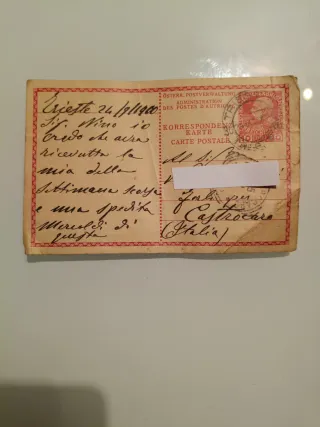 Trieste 24/9/1900
Sig. Nino io
credo che avra
ricevutta la
mia della
settimana scorsa
e una spedita
Mercoldi di
questa
ÖSTERR. POSTVERWALTUNG
ADMINISTRATION
DES POSTES D'AUTRICHE
KORRESPONDENZ-
KARTE
CARTE POSTALE
Al Sig.
Forlì per
Castrocaro
(Italia)